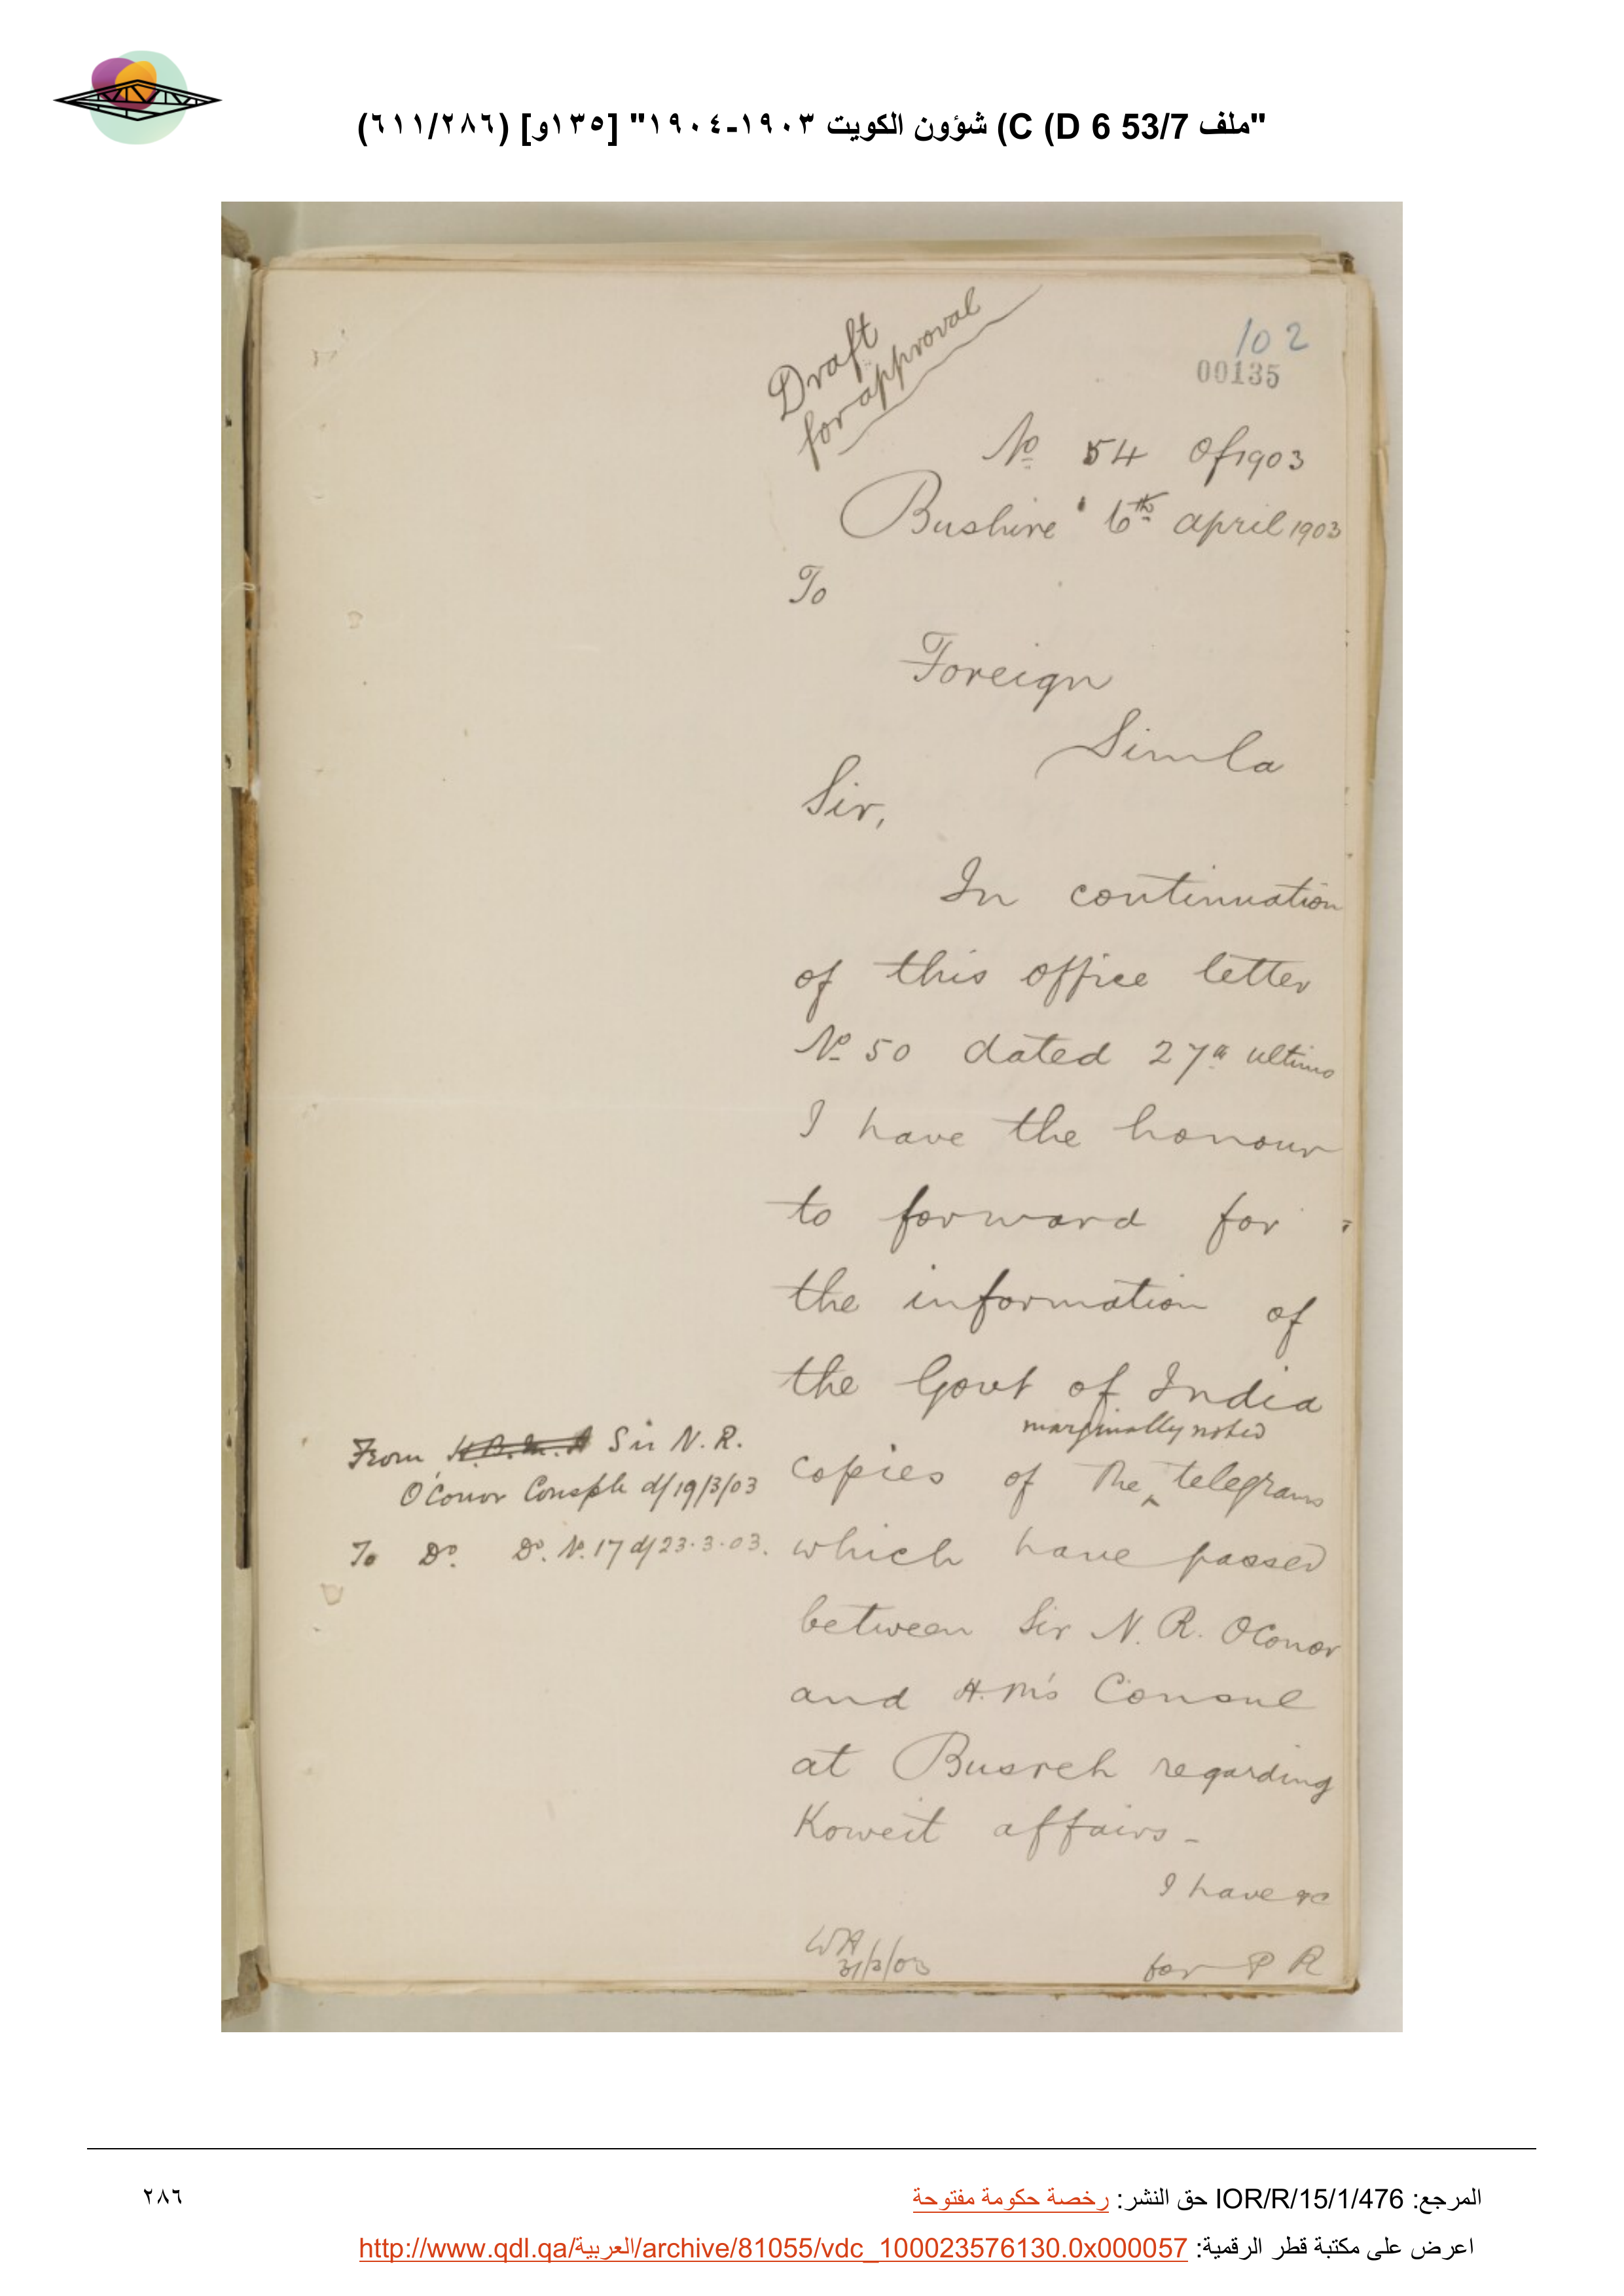 "ملف 53/7 D 6) C) شؤون الكويت ١٩٠٣-١٩٠٤" [١٣٥و] (٦١١/٢٨٦)
Draft
for approval
102
00135
No 54 Of 1903
Bushire 6th april 1903
To
Foreign
Simla
Sir,
In continuation
of this office letter
No 50 dated 27th ultimo
I have the honour
to forward for
the information of
the Govt of India
marginally noted
copies of the ^ telegrams
which have passed
between Sir N. R. OConor
and H.M's Consul
at Busreh regarding
Koweit affairs -
I have &c
for P R
WA
31/3/03
From H.B.M. Sir N. R.
O'Conor Consple d/19/3/03
To Do. Do. No. 17 d/23.3.03.
المرجع: IOR/R/15/1/476 حق النشر: رخصة حكومة مفتوحة
٢٨٦
اعرض على مكتبة قطر الرقمية: http://www.qdl.qa/العربية/archive/81055/vdc_100023576130.0x000057